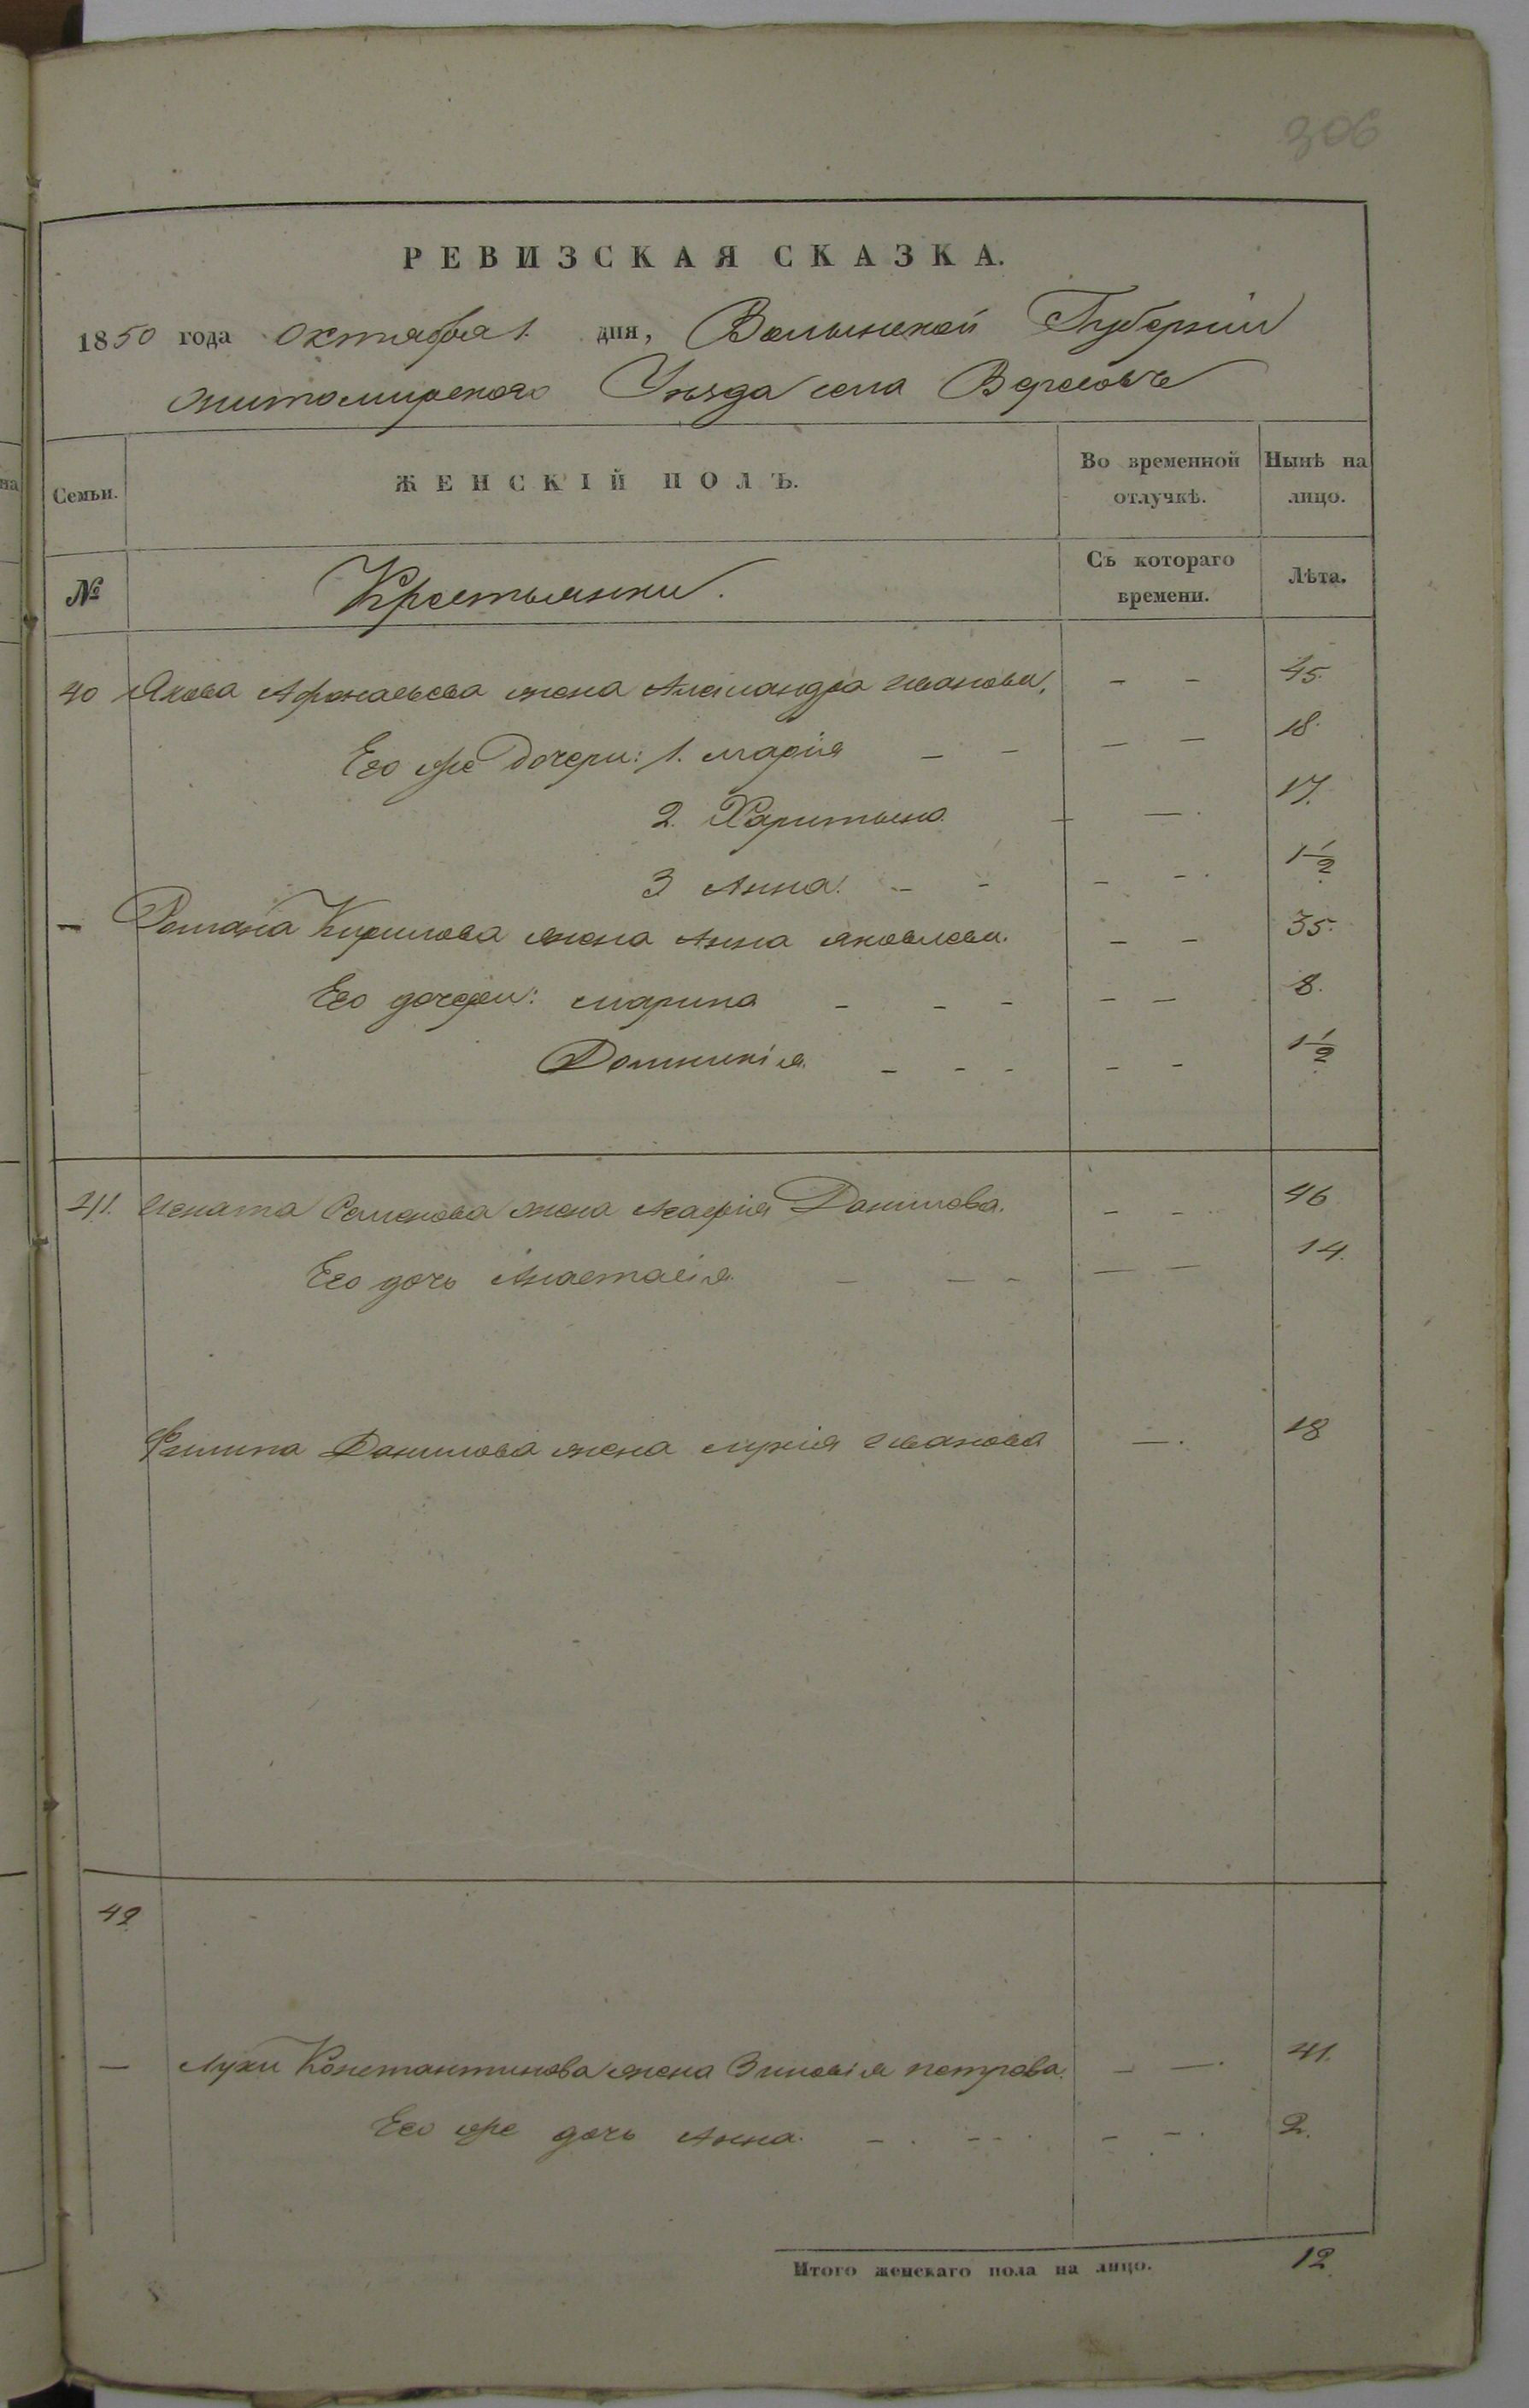 306
РЕВИЗСКАЯ СКАЗКА.
1850 года Октября 1. дня, Волынской Губернии
Житомирского Уезда села Вересовъ
Семьи.
ЖЕНСКІЙ ПОЛЪ.
Во временной отлучкѣ.
Нынѣ на лицо.
№
Крестьянки.
Съ котораго времени.
Лѣта.
40 Якова Афонасьева жена Александра Иванова, - - 45.
Его же Дочери: 1. Марія - - - - 18.
2. Харитына - - . 17.
3 Анна. - - - - . 1½
- Романа Кирилова жена Анна Яковлева. - - 35.
Его дочери: Марина - - - - - 8.
Домникія. - - - - - 1½
41. Игната Семенова жена Агафія Данилова. - - 46
Его дочь Анастасія. - - - - - 14.
Филипа Данилова жена Лукія Иванова - . 18
42
- Луки Константинова жена Зиновія Петрова. - - . 41.
Его же дочь Анна. - . - - . - - . 2.
Итого женскаго пола на лицо. 12